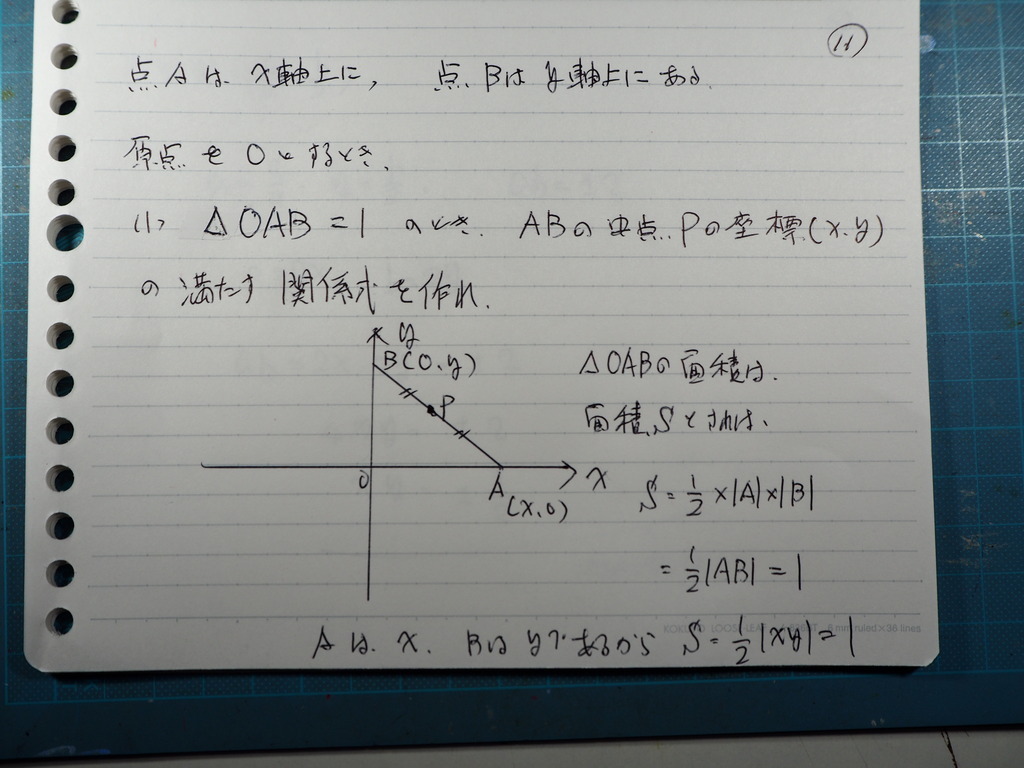 (11)
点 A は x 軸上に, 点 B は y 軸上にある.
原点を O とするとき.
(1) △OAB = 1 のとき. AB の中点 P の座標 (x, y)
の満たす関係式を作れ.
y
B(0, y)
P
O
A
(x, 0)
x
△OAB の面積は.
面積 S とすれば、
S = 1/2 × |A| × |B|
= 1/2 |AB| = 1
A は x. B は y であるから S = 1/2 |xy| = 1
6 mm ruled×36 lines